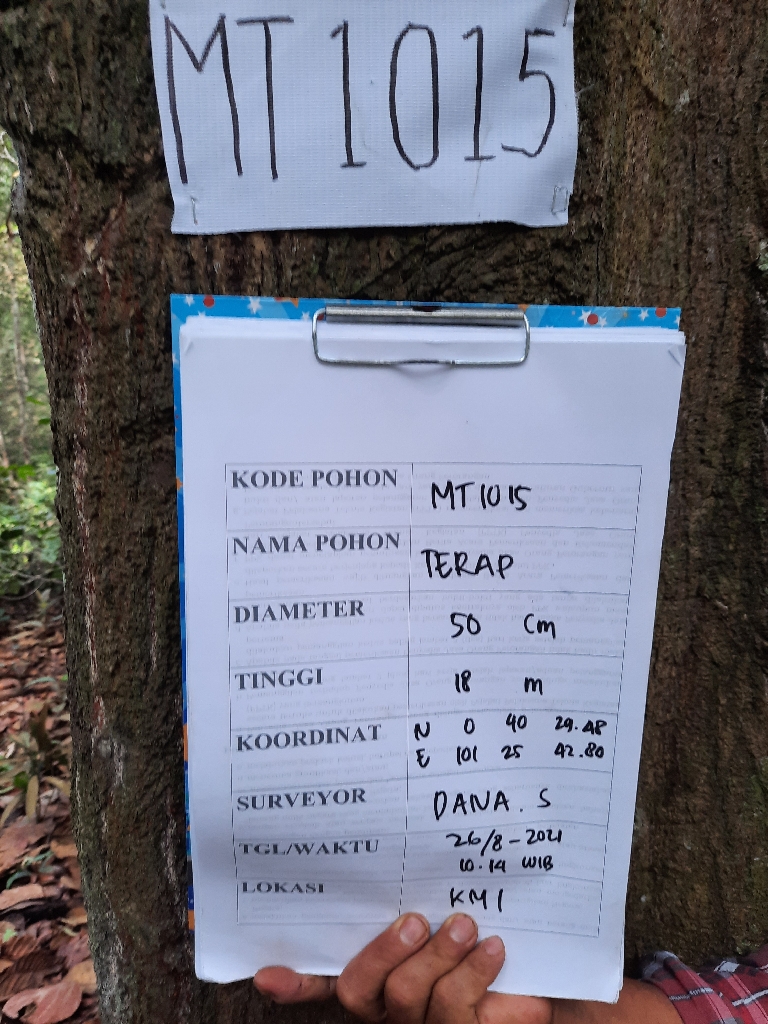 MT 1015
KODE POHON MT1015
NAMA POHON TERAP
DIAMETER 50 Cm
TINGGI 18 m
KOORDINAT N 0 40 29.48
E 101 25 42.80
SURVEYOR DANA. S
TGL/WAKTU 26/8-2021
10.14 WIB
LOKASI KM1